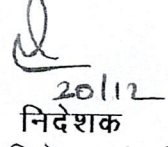 20/12
निदेशक